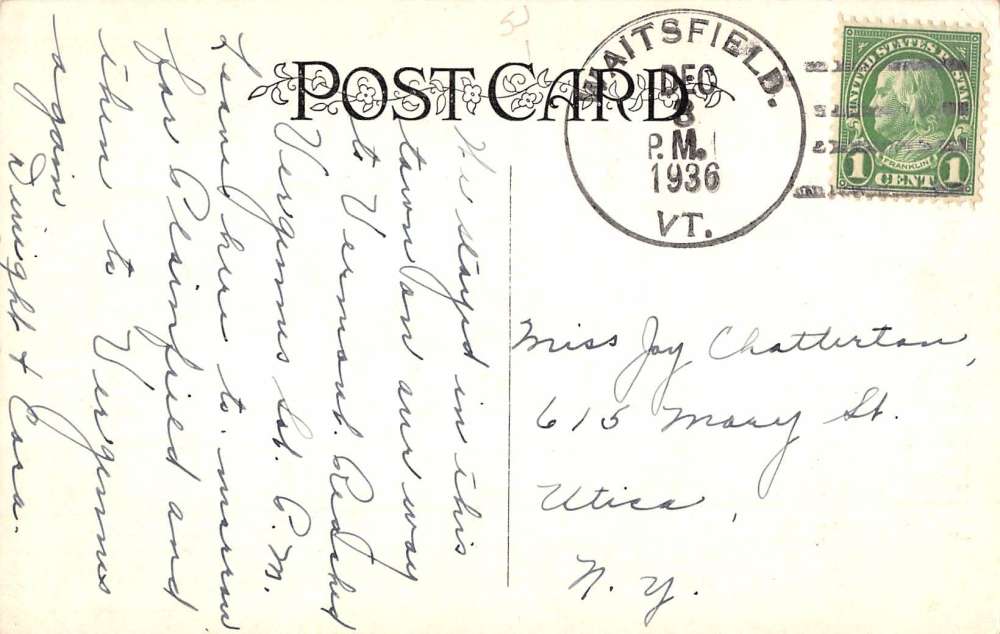 POST CARD
WAITSFIELD.
DEC
8
P.M.
1936
VT.
UNITED STATES POSTAGE
FRANKLIN
1 CENT 1
We stayed in this
town on our way
to Vermont. Reached
Vergennes Sat. P.M.
Leave here to-morrow
for Plainfield and
then to Vergennes
again
Dwight & Cora.
Miss Joy Chatterton,
615 Mary St.
Utica,
N.Y.